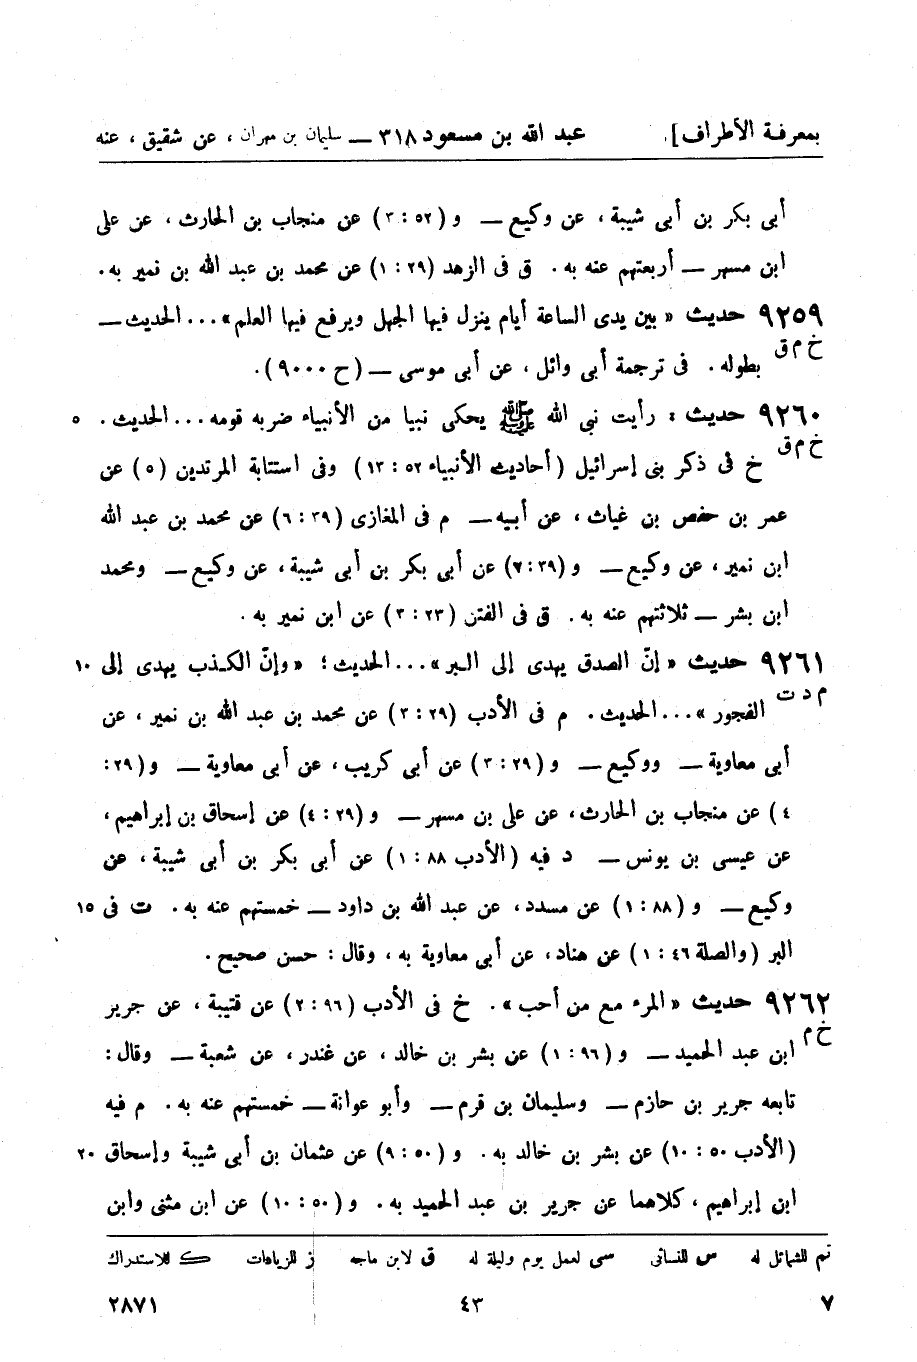 بمعرفة الأطراف]. عبد الله بن مسعود ٣١٨ — سليمان بن مهران ، عن شقيق ، عنه
أبى بكر بن أبى شيبة ، عن وكيع — و (٥٢ : ٣) عن منجاب بن الحارث ، عن على
ابن مسهر — أربعتهم عنه به . ق فى الزهد (٢٩ : ١) عن محمد بن عبد الله بن نمير به .
٩٢٥٩ حديث « بين يدى الساعة أيام ينزل فيها الجهل ويرفع فيها العلم » ... الحديث —
خ م ق بطوله . فى ترجمة أبى وائل ، عن أبى موسى — (ح ٩٠٠٠) .
٩٢٦٠ حديث : رأيت نبى الله ﷺ يحكى نبيا من الأنبياء ضربه قومه ... الحديث . ٥
خ م ق خ فى ذكر بنى إسرائيل (أحاديث الأنبياء ٥٢ : ١٣) وفى استتابة المرتدين (٥) عن
عمر بن حفص بن غياث ، عن أبيه — م فى المغازى (٣٩ : ٦) عن محمد بن عبد الله
ابن نمير ، عن وكيع — و (٣٩ : ٧) عن أبى بكر بن أبى شيبة ، عن وكيع — ومحمد
ابن بشر — ثلاثتهم عنه به . ق فى الفتن (٢٣ : ٣) عن ابن نمير به .
٩٢٦١ حديث « إنّ الصدق يهدى إلى البر » ... الحديث ؛ « وإنّ الكذب يهدى إلى ١٠
م د ت الفجور » ... الحديث . م فى الأدب (٢٩ : ٣) عن محمد بن عبد الله بن نمير ، عن
أبى معاوية — ووكيع — و (٢٩ : ٣) عن أبى كريب ، عن أبى معاوية — و (٢٩ :
٤) عن منجاب بن الحارث ، عن على بن مسهر — و (٢٩ : ٤) عن إسحاق بن إبراهيم ،
عن عيسى بن يونس — د فيه (الأدب ٨٨ : ١) عن أبى بكر بن أبى شيبة ، عن
وكيع — و (٨٨ : ١) عن مسدد ، عن عبد الله بن داود — خمستهم عنه به . ت فى ١٥
البر (والصلة ٤٦ : ١) عن هناد ، عن أبى معاوية به ، وقال : حسن صحيح .
٩٢٦٢ حديث « المرء مع من أحب » . خ فى الأدب (٩٦ : ٢) عن قتيبة ، عن جرير
خ م ابن عبد الحميد — و (٩٦ : ١) عن بشر بن خالد ، عن غندر ، عن شعبة — وقال :
تابعه جرير بن حازم — وسليمان بن قرم — وأبو عوانة — خمستهم عنه به . م فيه
(الأدب ٥٠ : ١٠) عن بشر بن خالد به . و (٥٠ : ٩) عن عثمان بن أبى شيبة وإسحاق ٢٠
ابن إبراهيم ، كلاهما عن جرير بن عبد الحميد به . و (٥٠ : ١٠) عن ابن مثنى وابن
تم للشمائل له س للنسائى سى لعمل يوم وليلة له ق لابن ماجه ز للزيادات ك للاستدراك
٧ ٤٣ ٢٨٧١